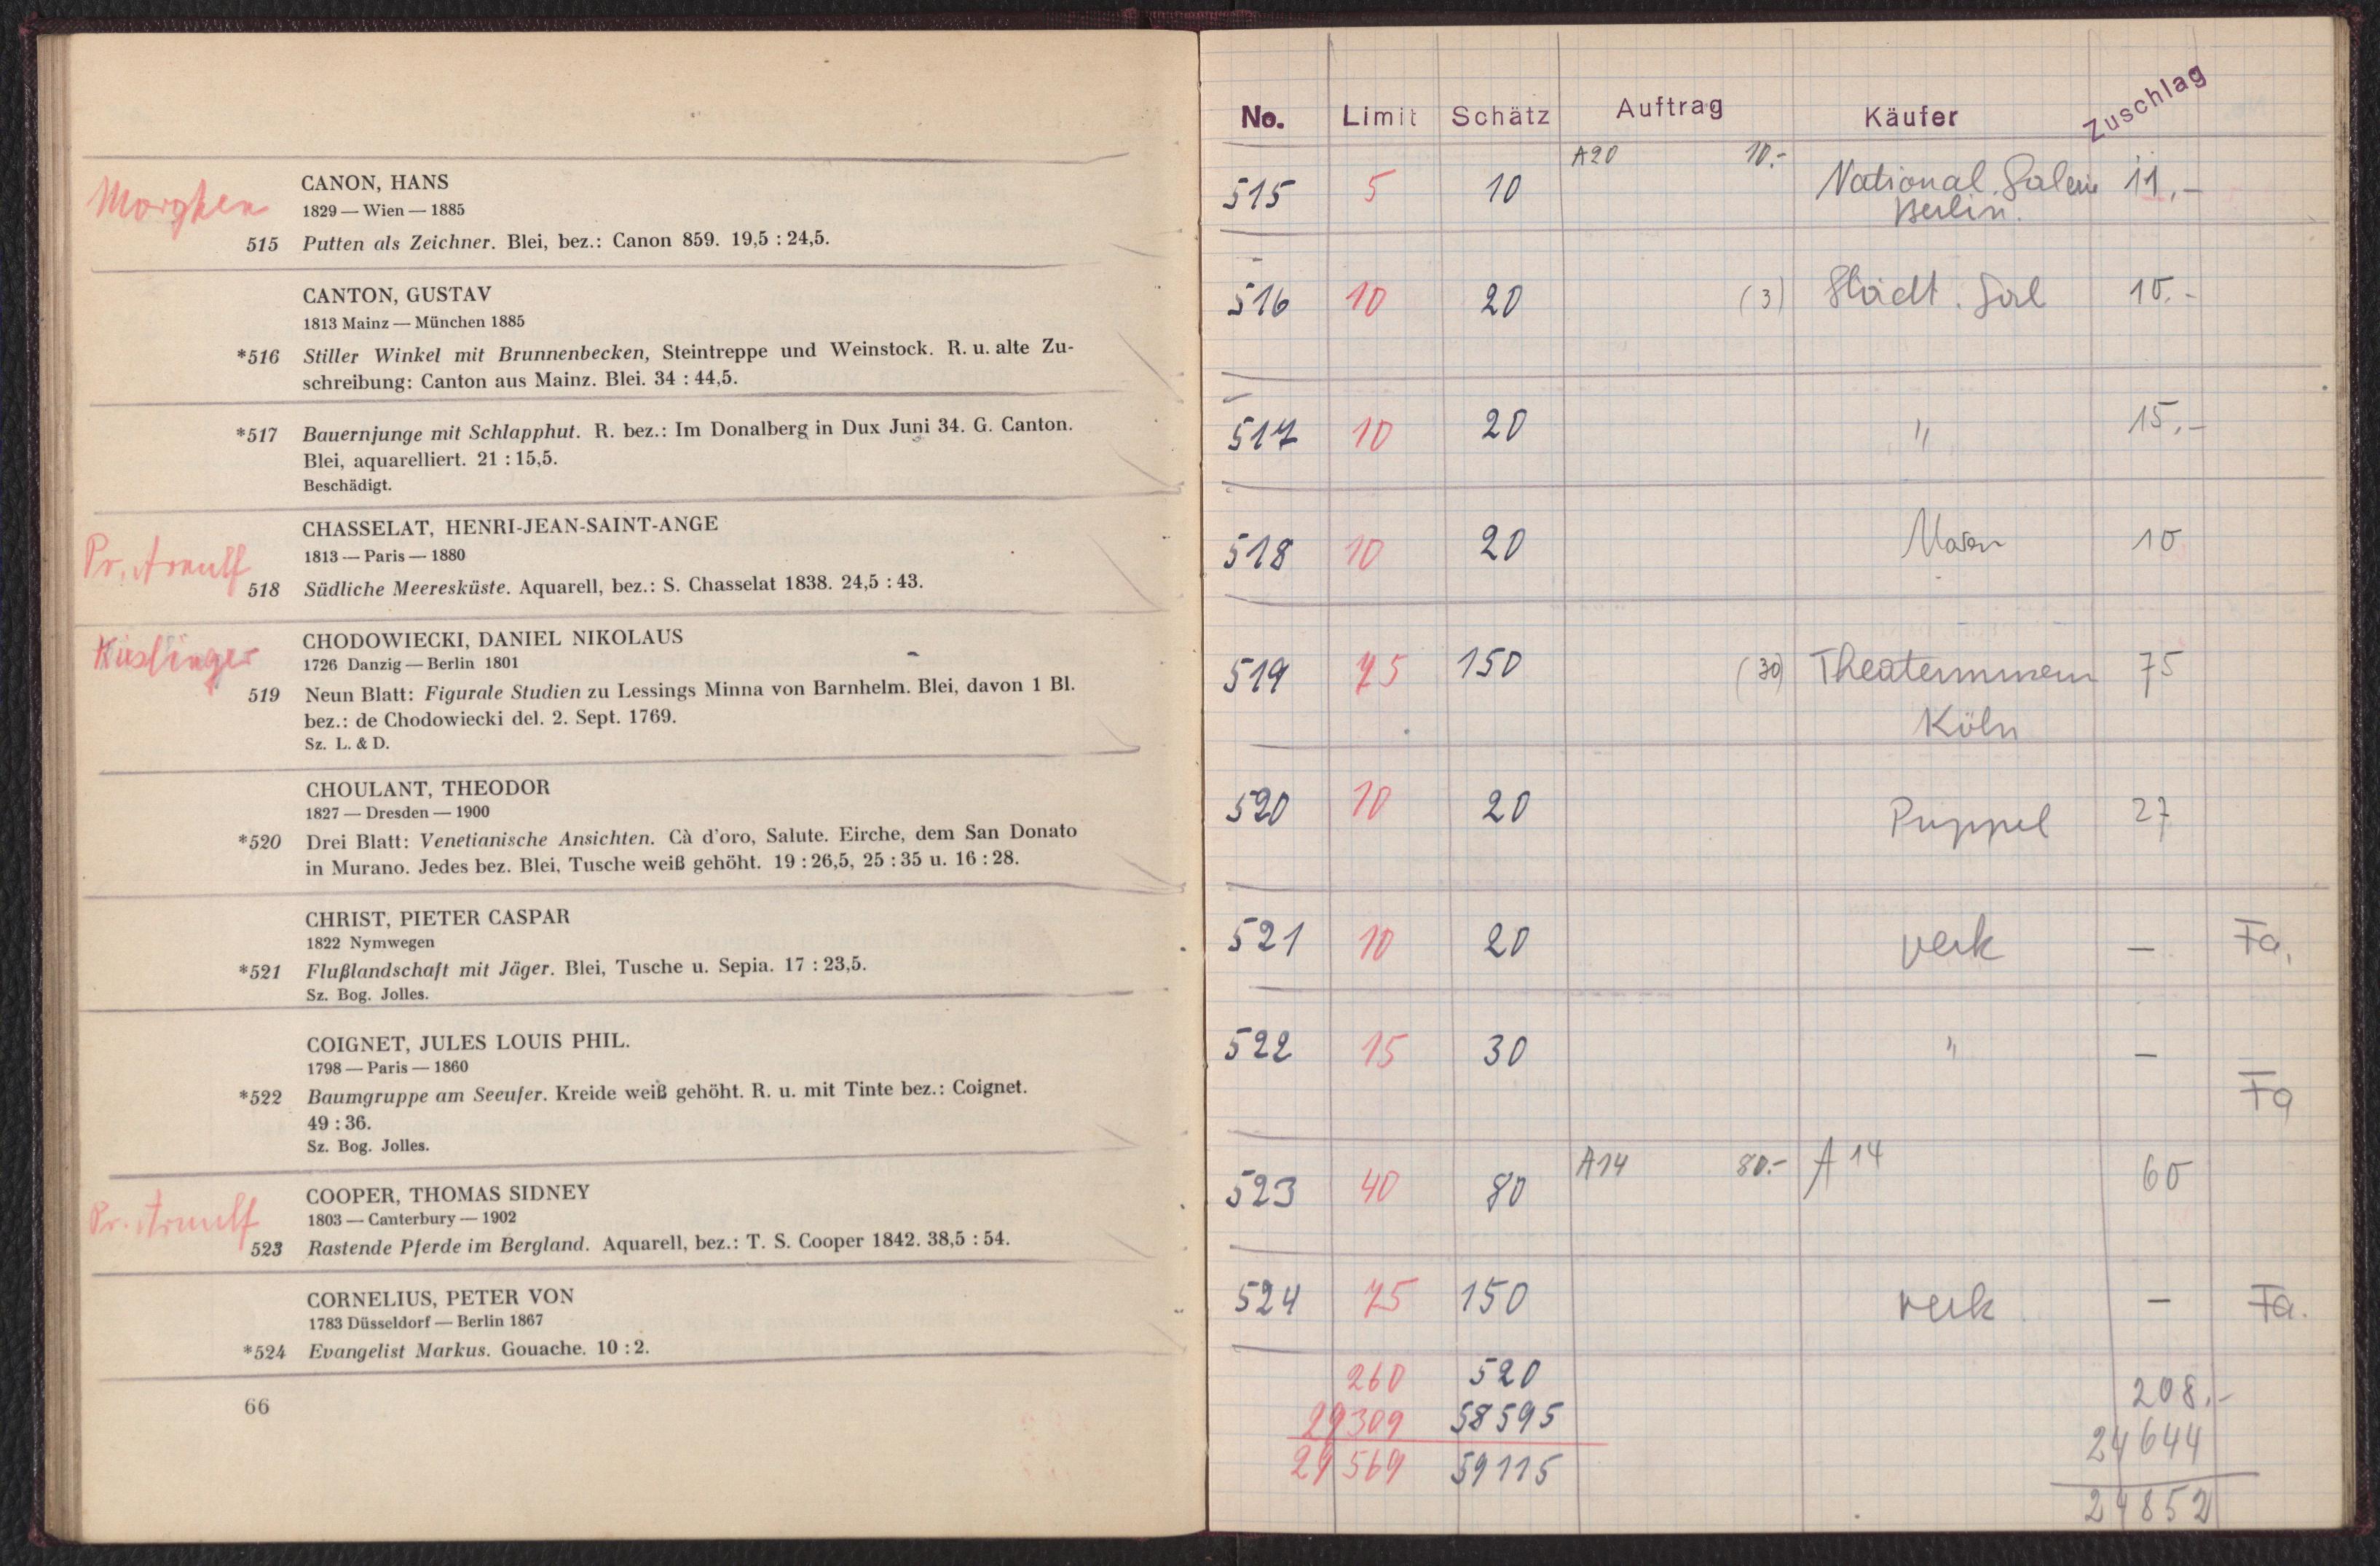 Morgken
CANON, HANS
1829 — Wien — 1885
515 Putten als Zeichner. Blei, bez.: Canon 859. 19,5 : 24,5.
CANTON, GUSTAV
1813 Mainz — München 1885
*516 Stiller Winkel mit Brunnenbecken, Steintreppe und Weinstock. R. u. alte Zu-
schreibung: Canton aus Mainz. Blei. 34 : 44,5.
*517 Bauernjunge mit Schlapphut. R. bez.: Im Donalberg in Dux Juni 34. G. Canton.
Blei, aquarelliert. 21 : 15,5.
Beschädigt.
Pr. Arnulf
CHASSELAT, HENRI-JEAN-SAINT-ANGE
1813 — Paris — 1880
518 Südliche Meeresküste. Aquarell, bez.: S. Chasselat 1838. 24,5 : 43.
Kieslinger
CHODOWIECKI, DANIEL NIKOLAUS
1726 Danzig — Berlin 1801
519 Neun Blatt: Figurale Studien zu Lessings Minna von Barnhelm. Blei, davon 1 Bl.
bez.: de Chodowiecki del. 2. Sept. 1769.
Sz. L. & D.
CHOULANT, THEODOR
1827 — Dresden — 1900
*520 Drei Blatt: Venetianische Ansichten. Cà d'oro, Salute. Eirche, dem San Donato
in Murano. Jedes bez. Blei, Tusche weiß gehöht. 19 : 26,5, 25 : 35 u. 16 : 28.
CHRIST, PIETER CASPAR
1822 Nymwegen
*521 Flußlandschaft mit Jäger. Blei, Tusche u. Sepia. 17 : 23,5.
Sz. Bog. Jolles.
COIGNET, JULES LOUIS PHIL.
1798 — Paris — 1860
*522 Baumgruppe am Seeufer. Kreide weiß gehöht. R. u. mit Tinte bez.: Coignet.
49 : 36.
Sz. Bog. Jolles.
Pr. Arnulf
COOPER, THOMAS SIDNEY
1803 — Canterbury — 1902
523 Rastende Pferde im Bergland. Aquarell, bez.: T. S. Cooper 1842. 38,5 : 54.
CORNELIUS, PETER VON
1783 Düsseldorf — Berlin 1867
*524 Evangelist Markus. Gouache. 10 : 2.
66
No. Limit Schätz Auftrag Käufer Zuschlag
515 5 10 A20 10.- National. Galerie 11,-
Berlin.
516 10 20 (3) Städt. Gal 10.-
517 10 20 " 15,-
518 10 20 10
519 75 150 (30) Theatermuseum 75
Köln
520 10 20 Puppel 27
521 10 20 verk — Fa.
522 15 30 " —
Fa
523 40 80 A14 80.- A 14 60
524 75 150 verk — Fa.
260 520 208,-
29309 58595 24644
29569 59115 24852